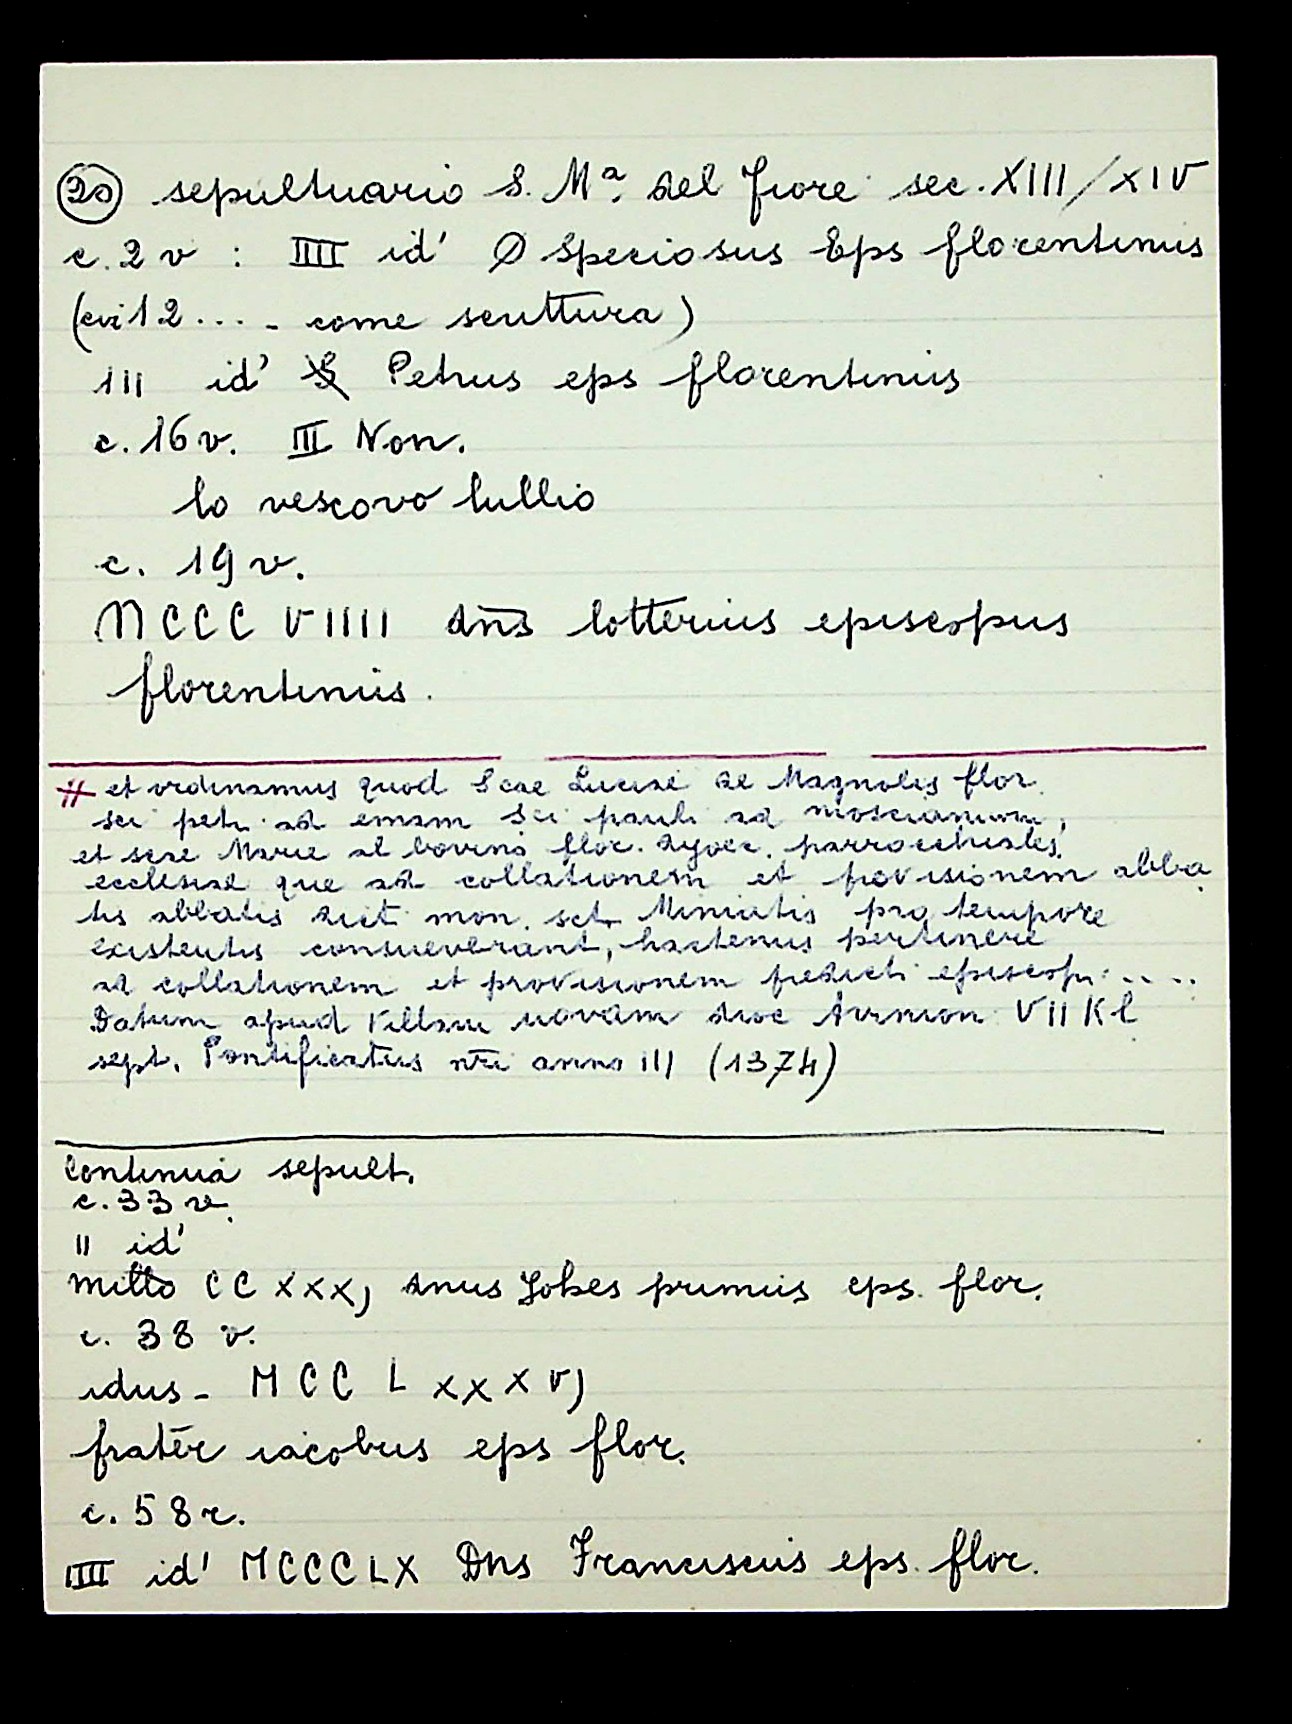 20 sepultuario S. Mª del Fiore sec. XIII/XIV
c. 2 v : IIII id' Ø Speciosus Eps florentinus
(cvi 12 .... come scrittura)
III id' Petrus eps florentinus
c. 16 v. III Non.
lo vescovo lullio
c. 19 v.
MCCC VIIII dns lotterius episcopus
florentinus.
# et ordinamus quod Scae Luciae de Magnolis flor.
sci petri ad emam Sci pauli ad moscianum,
et scae Marie al bovino flor. dyoec. parrocchiales
ecclesiae que ad collationem et provisionem abba
tis abbatis dict mon. scti Miniatis pro tempore
existentis consueverant, hactenus pertinere
ad collationem et provisionem predicti episcopi....
Datum apud Villam novam dioc Avinion VII Kl
sept. Pontificatus nri anno III (1374)
continua sepult.
c. 33 v.
II id'
mille CC XXXJ dnus Johes primus eps. flor.
c. 38 v.
idus - MCC L XXX VJ
frater iacobus eps flor.
c. 58 r.
IIII id' MCCCLX Dns Franciscus eps. flor.